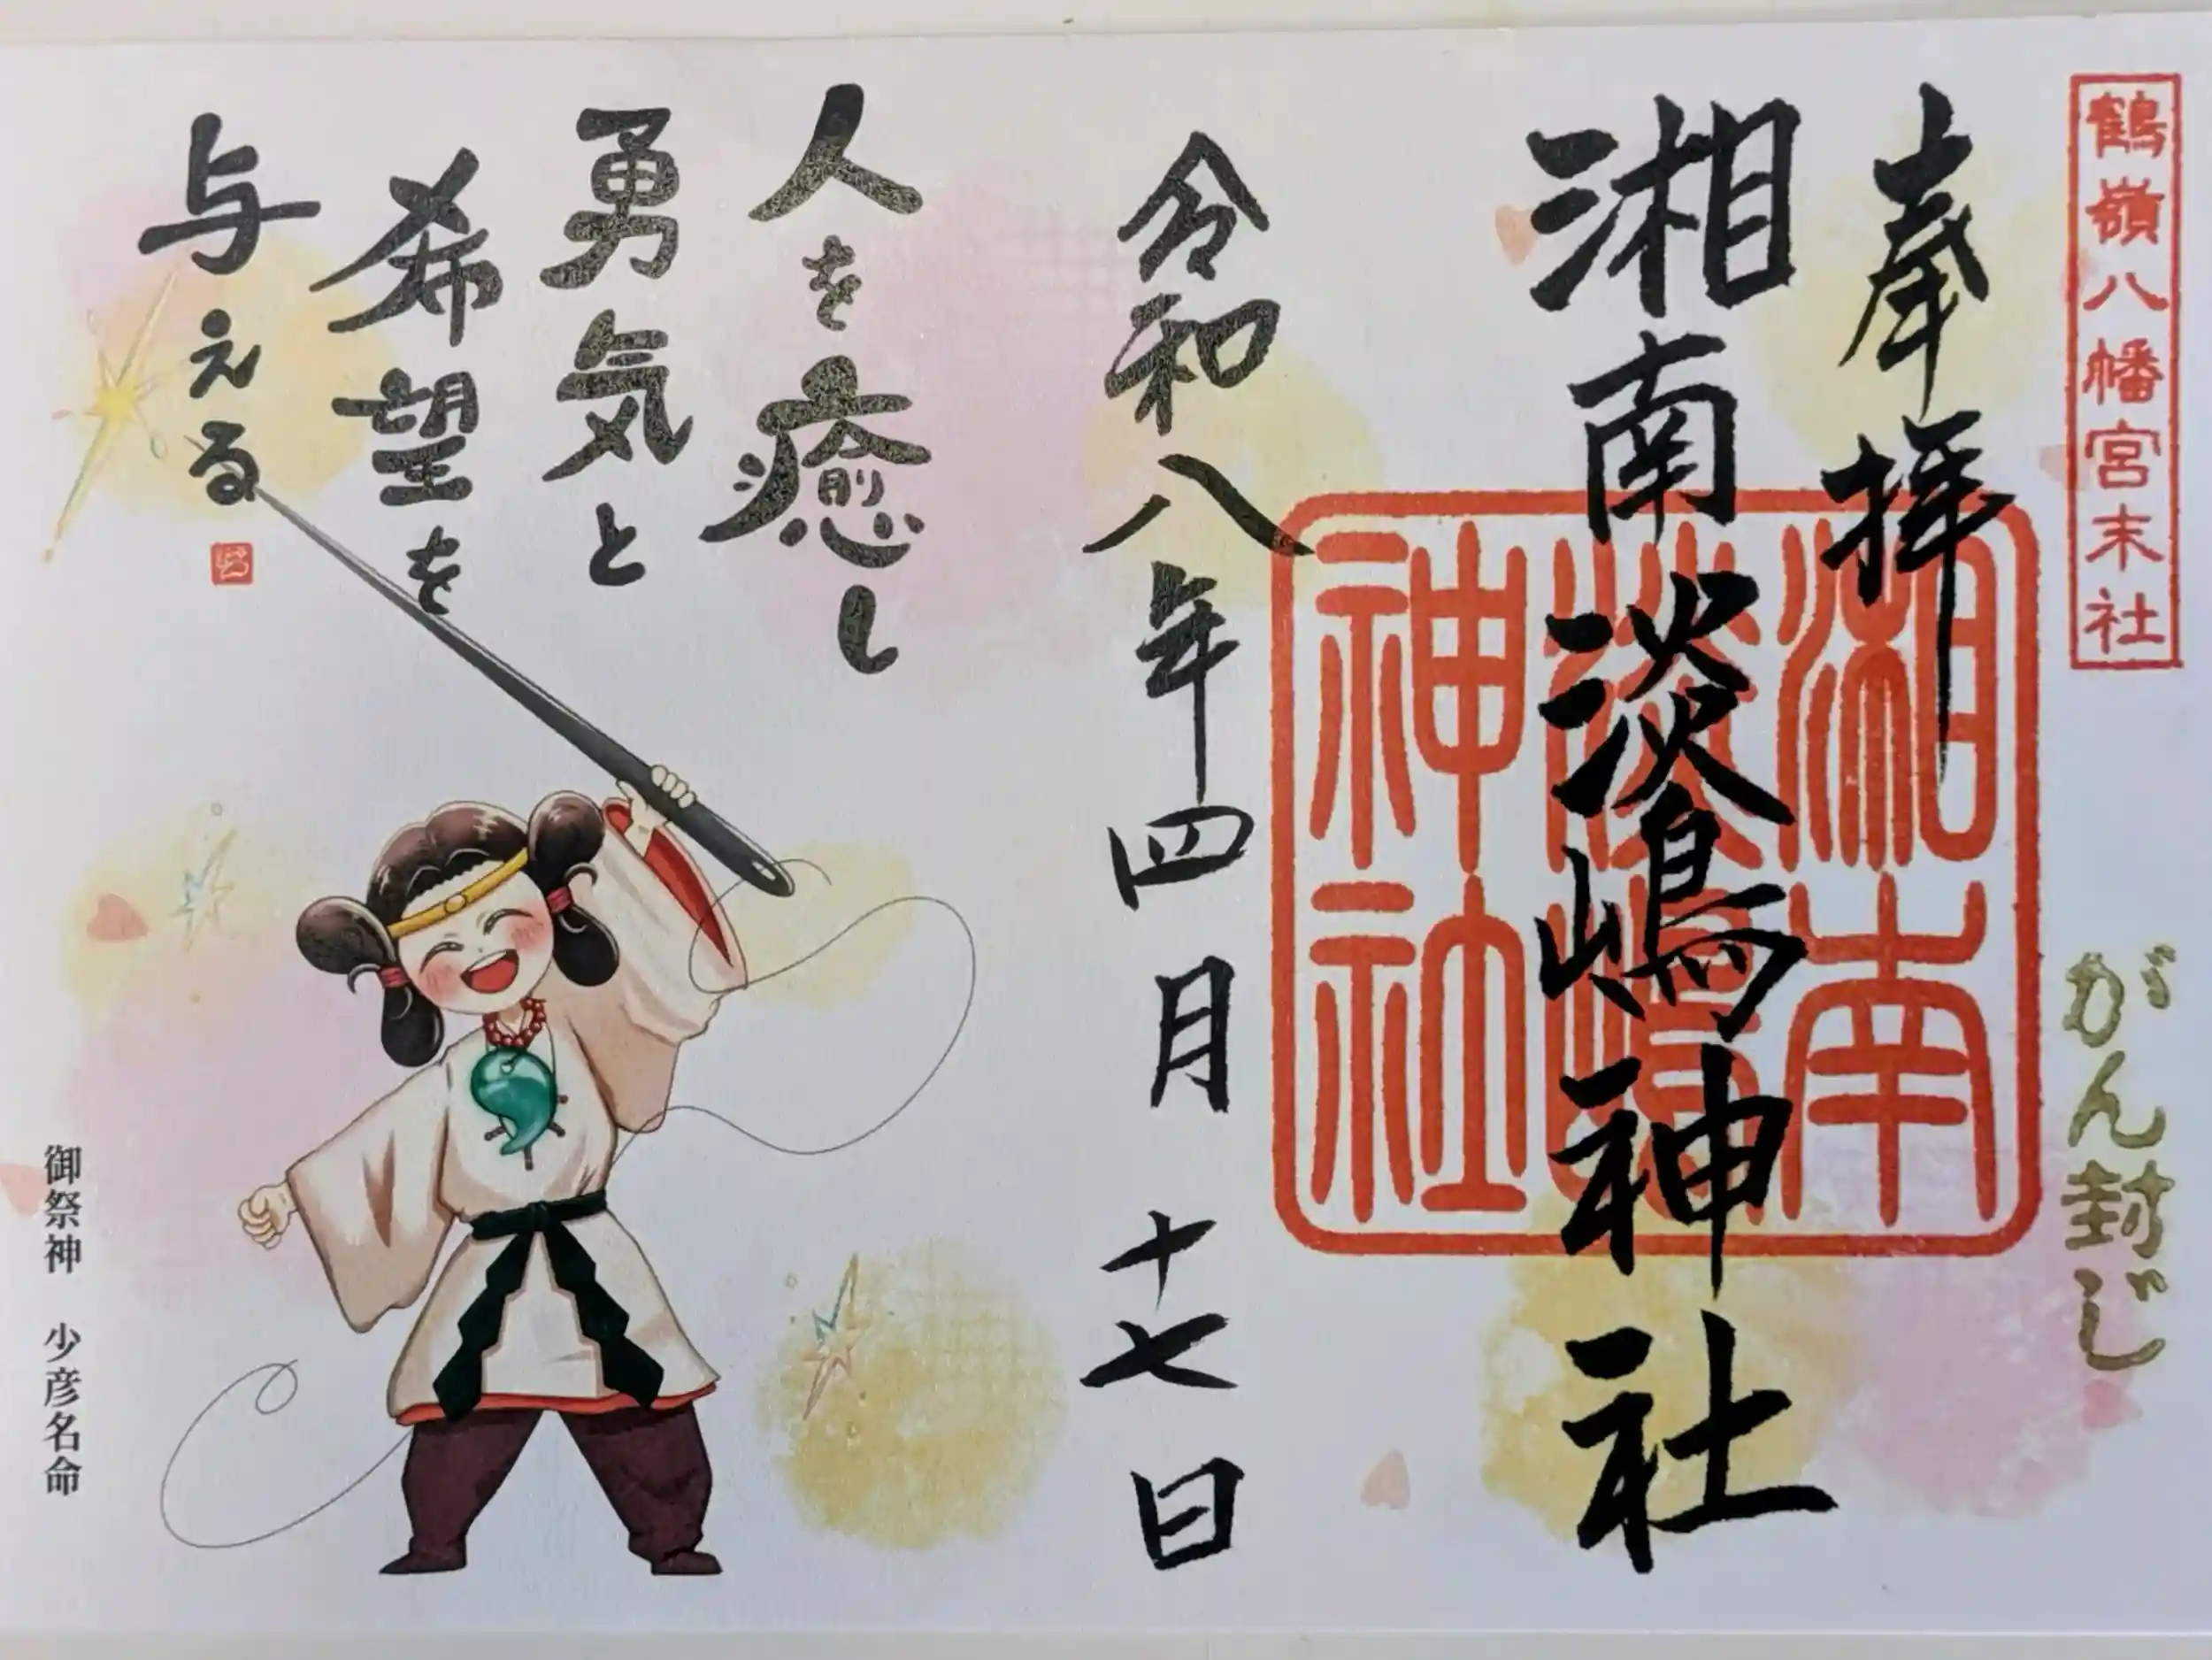 鶴嶺八幡宮末社
がん封じ
奉拝
湘南淡嶋神社
湘南
淡嶋
神社
令和八年四月十七日
人を癒し
勇気と
希望を
与える
御祭神 少彦名命